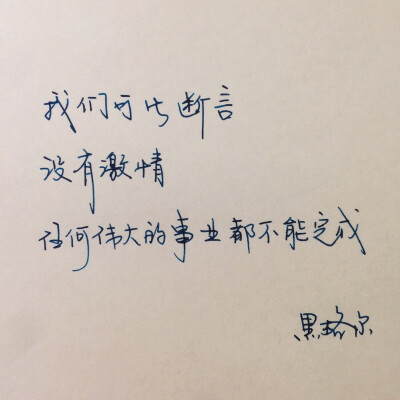 我们可以断言
没有激情
任何伟大的事业都不能完成
黑格尔